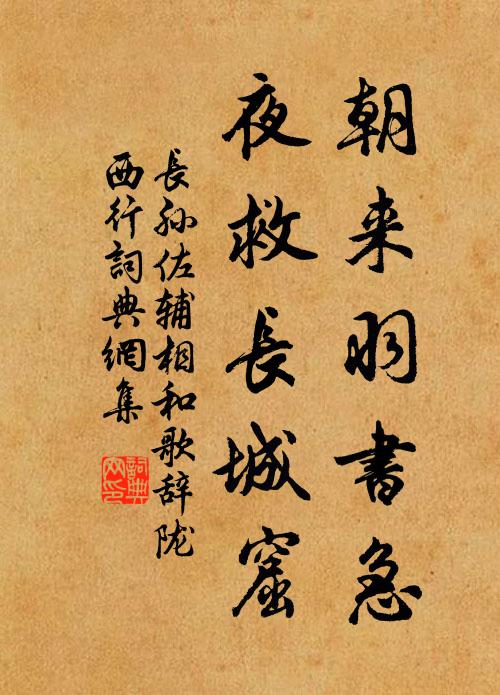 朝来羽書急
夜救長城窟
長孫佐辅相和歌辞陇
西行詞典網集
詞典
网印